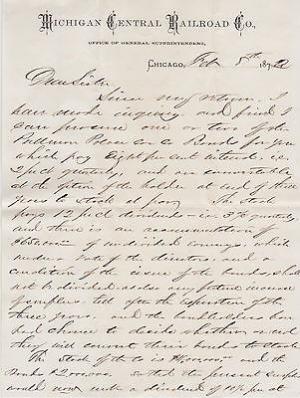 MICHIGAN CENTRAL RAILROAD CO.,
OFFICE OF GENERAL SUPERINTENDENT,
CHICAGO, Feb 5th 187
Dear Sister
Since my return I
have made inquiry and find I
can procure one or two of the
Pullman Palace Car Co Bonds for you
which pay Eight per cent interest, i.e.
2 pct quarterly, and are convertable
at the option of the holder at end of three
years to stock at par The stock
pays 12 pct dividends - i.e. 3% quarterly
and there is an accumulation of
of undivided earnings, which
under a vote of the directors, and a
condition of the issue of the bonds, shall
not be divided, unless any future increase
of surplus, till after the expiration of the
three years, and the bondholders have
had chance to decide whether or not
they will convert their bonds to stock
The Stock of the Co is and the
Bonds $2,000,000. so that the present surplus
would now make a dividend of pr ct